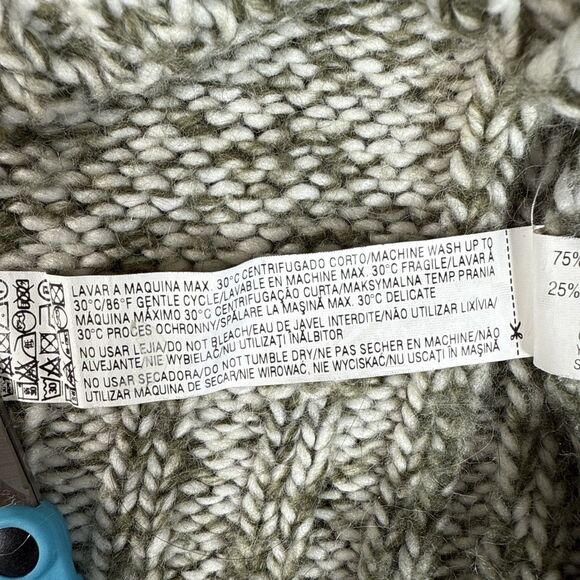 LAVAR A MAQUINA MAX. 30°C CENTRIFUGADO CORTO/MACHINE WASH UP TO
30°C/86°F GENTLE CYCLE/LAVABLE EN MACHINE MAX. 30°C FRAGILE/LAVAR À
MÁQUINA MÁXIMO 30°C CENTRIFUGAÇÃO CURTA/MAKSYMALNA TEMP PRANIA
30°C PROCES OCHRONNY/SPALARE LA MAŞINĂ MAX. 30°C DELICATE
NO USAR LEJIA/DO NOT BLEACH/EAU DE JAVEL INTERDITE/NÃO UTILIZAR LIXÍVIA/
ALVEJANTE/NIE WYBIELAĆ/NU UTILIZAȚI ÎNĂLBITOR
NO USAR SECADORA/DO NOT TUMBLE DRY/NE PAS SECHER EN MACHINE/NÃO
UTILIZAR MÁQUINA DE SECAR/NIE WIROWAĆ, NIE WYŻYMAĆ/NU USCAȚI ÎN MAŞINĂ
75%
25%